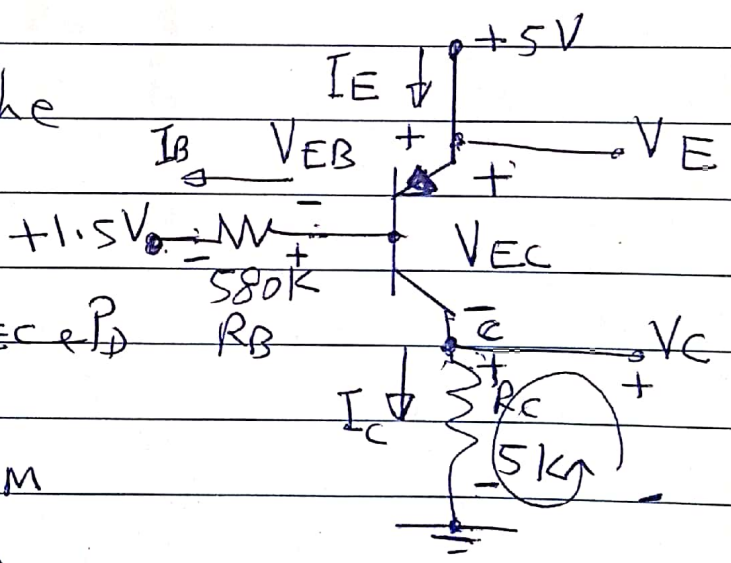 +5V
he
IE
+
IB
VEB
VE
+
-
+1.5V
-
+
VEC
580K
-
C
EC & PD
RB
VC
+
+
IC
RC
5K
-
-
M